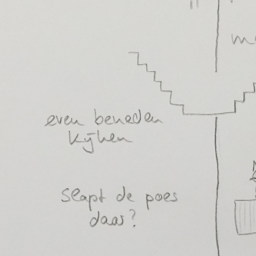 m
even beneden
kijken
slapt de poes
daar?